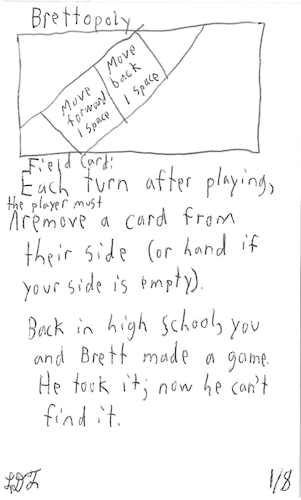 Brettopoly
Move
forward
1 space
Move
back
1 space
Field Card:
Each turn after playing,
the player must
remove a card from
their side (or hand if
your side is empty).
Back in high school, you
and Brett made a game.
He took it; now he can't
find it.
LDT 1/8